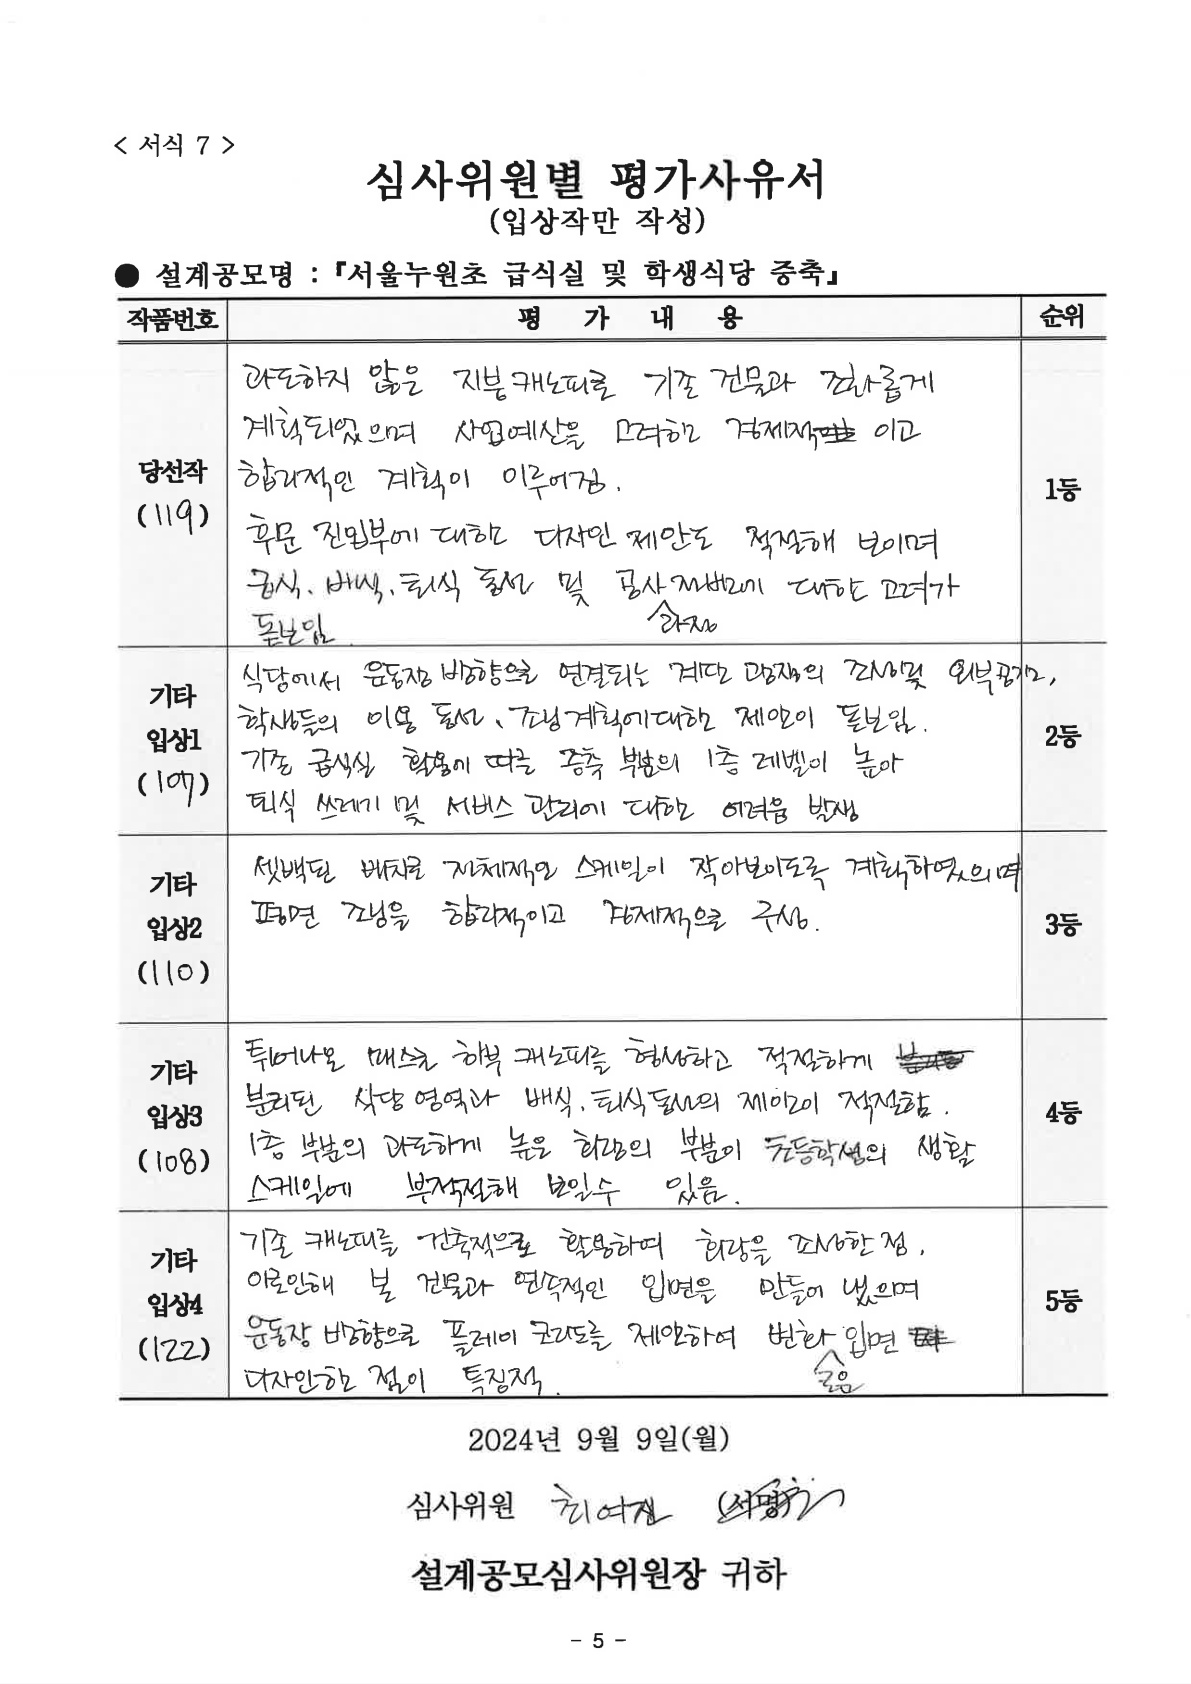 < 서식 7 >
심사위원별 평가사유서
(입상작만 작성)
● 설계공모명 : 『서울누원초 급식실 및 학생식당 증축』
작품번호 평 가 내 용 순위
당선작
(119)
과도하지 않은 지붕캐노피로 기존 건물과 조화롭게
계획되었으며 사업예산을 고려한 경제적 이고
합리적인 계획이 이루어짐.
후문 진입부에 대한 디자인 제안도 적절해 보이며
급식, 배식, 퇴식 동선 및 공사 대한 고려가
과정
돋보임
1등
기타
입상1
(107)
식당에서 운동장 방향으로 연결되는 계단 광장의 조성및 외부공간,
학생들의 이용 동선, 조닝계획에대한 제안이 돋보임.
기존 급식실 활용에 따른 증축 부분의 1층 레벨이 높아
퇴식 쓰레기 및 서비스 관리에 대한 어려움 발생
2등
기타
입상2
(110)
셋백된 배치로 전체적인 스케일이 작아보이도록 계획하였으며
평면 조닝을 합리적이고 경제적으로 구성.
3등
기타
입상3
(108)
튀어나온 매스로 하부 캐노피를 형성하고 적절하게
분리된 식당 영역과 배식, 퇴식동선의 제안이 적절함.
1층 부분의 과도하게 높은 회랑의 부분이 초등학생의 생활
스케일에 부적절해 보일수 있음.
4등
기타
입상4
(122)
기존 캐노피를 건축적으로 활용하여 회랑을 조성한 점,
이로인해 본 건물과 연속적인 입면을 만들어 냈으며
운동장 방향으로 플레이 코리도를 제안하여 변화 입면
디자인한 점이 특징적.
5등
2024년 9월 9일(월)
심사위원 최여진 (서명)
설계공모심사위원장 귀하
- 5 -